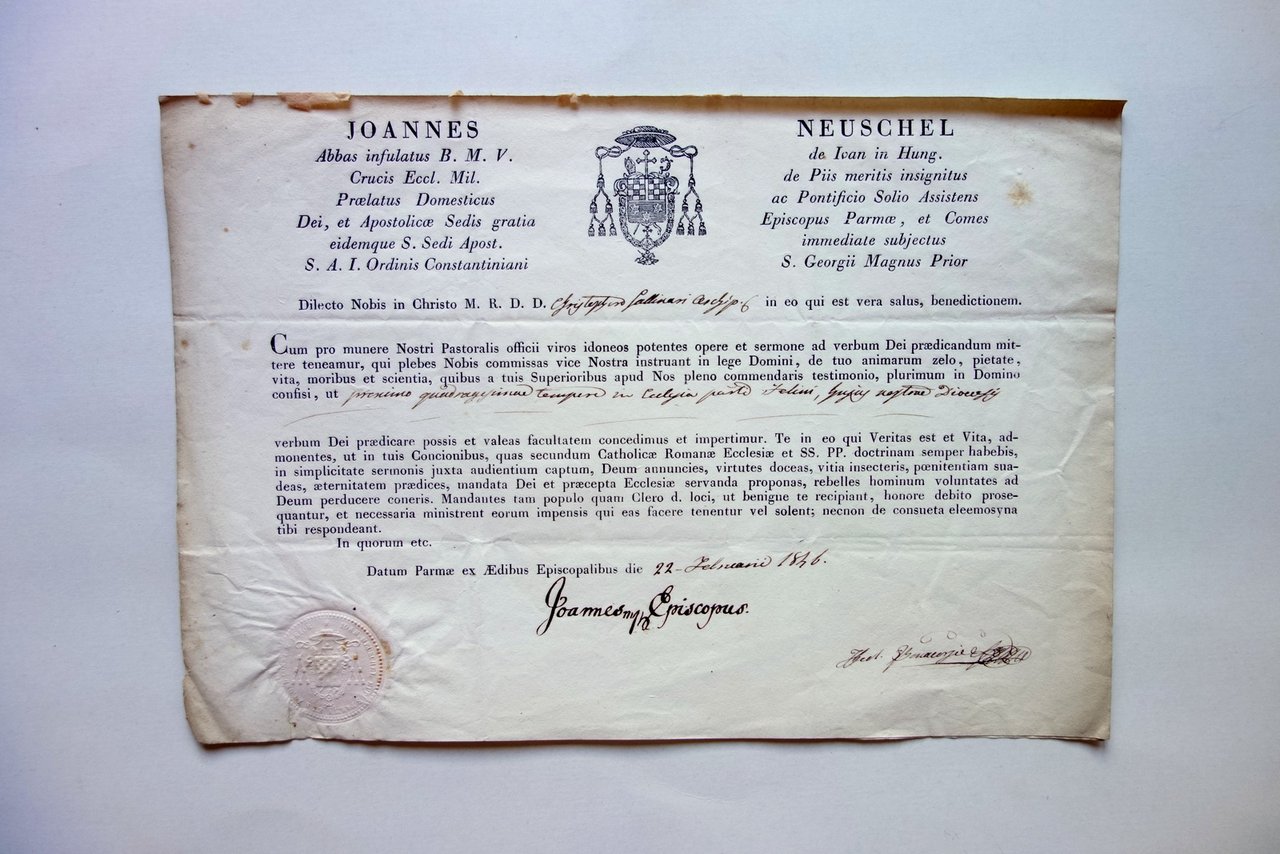 JOANNES NEUSCHEL
Abbas infulatus B. M. V. de Ivan in Hung.
Crucis Eccl. Mil. de Piis meritis insignitus
Prælatus Domesticus ac Pontificio Solio Assistens
Dei, et Apostolicæ Sedis gratia Episcopus Parmæ, et Comes
eidemque S. Sedi Apost. immediate subjectus
S. A. I. Ordinis Constantiniani S. Georgii Magnus Prior
Dilecto Nobis in Christo M. R. D. D. in eo qui est vera salus, benedictionem.
Cum pro munere Nostri Pastoralis officii viros idoneos potentes opere et sermone ad verbum Dei prædicandum mit-
tere teneamur, qui plebes Nobis commissas vice Nostra instruant in lege Domini, de tuo animarum zelo, pietate,
vita, moribus et scientia, quibus a tuis Superioribus apud Nos pleno commendaris testimonio, plurimum in Domino
confisi, ut proximo quadragesimae tempore in Ecclesia Felini, Diocesis
verbum Dei prædicare possis et valeas facultatem concedimus et impertimur. Te in eo qui Veritas est et Vita, ad-
monentes, ut in tuis Concionibus, quas secundum Catholicæ Romanæ Ecclesiæ et SS. PP. doctrinam semper habebis,
in simplicitate sermonis juxta audientium captum, Deum annuncies, virtutes doceas, vitia insecteris, pœnitentiam sua-
deas, æternitatem prædices, mandata Dei et præcepta Ecclesiæ servanda proponas, rebelles hominum voluntates ad
Deum perducere coneris. Mandantes tam populo quam Clero d. loci, ut benigne te recipiant, honore debito prose-
quantur, et necessaria ministrent eorum impensis qui eas facere tenentur vel solent; necnon de consueta eleemosyna
tibi respondeant.
In quorum etc.
Datum Parmæ ex Ædibus Episcopalibus die 22 Februarii 1846.
Joannes Episcopus.